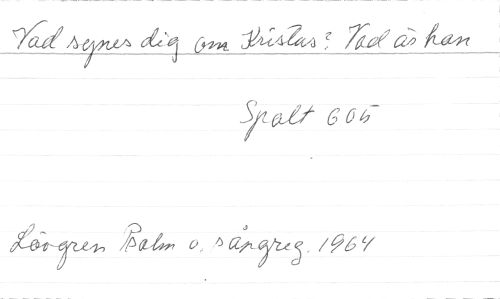 Vad synes dig om Kristus? Vad är han
Spalt 605
Lövgren Psalm o. sångreg. 1964